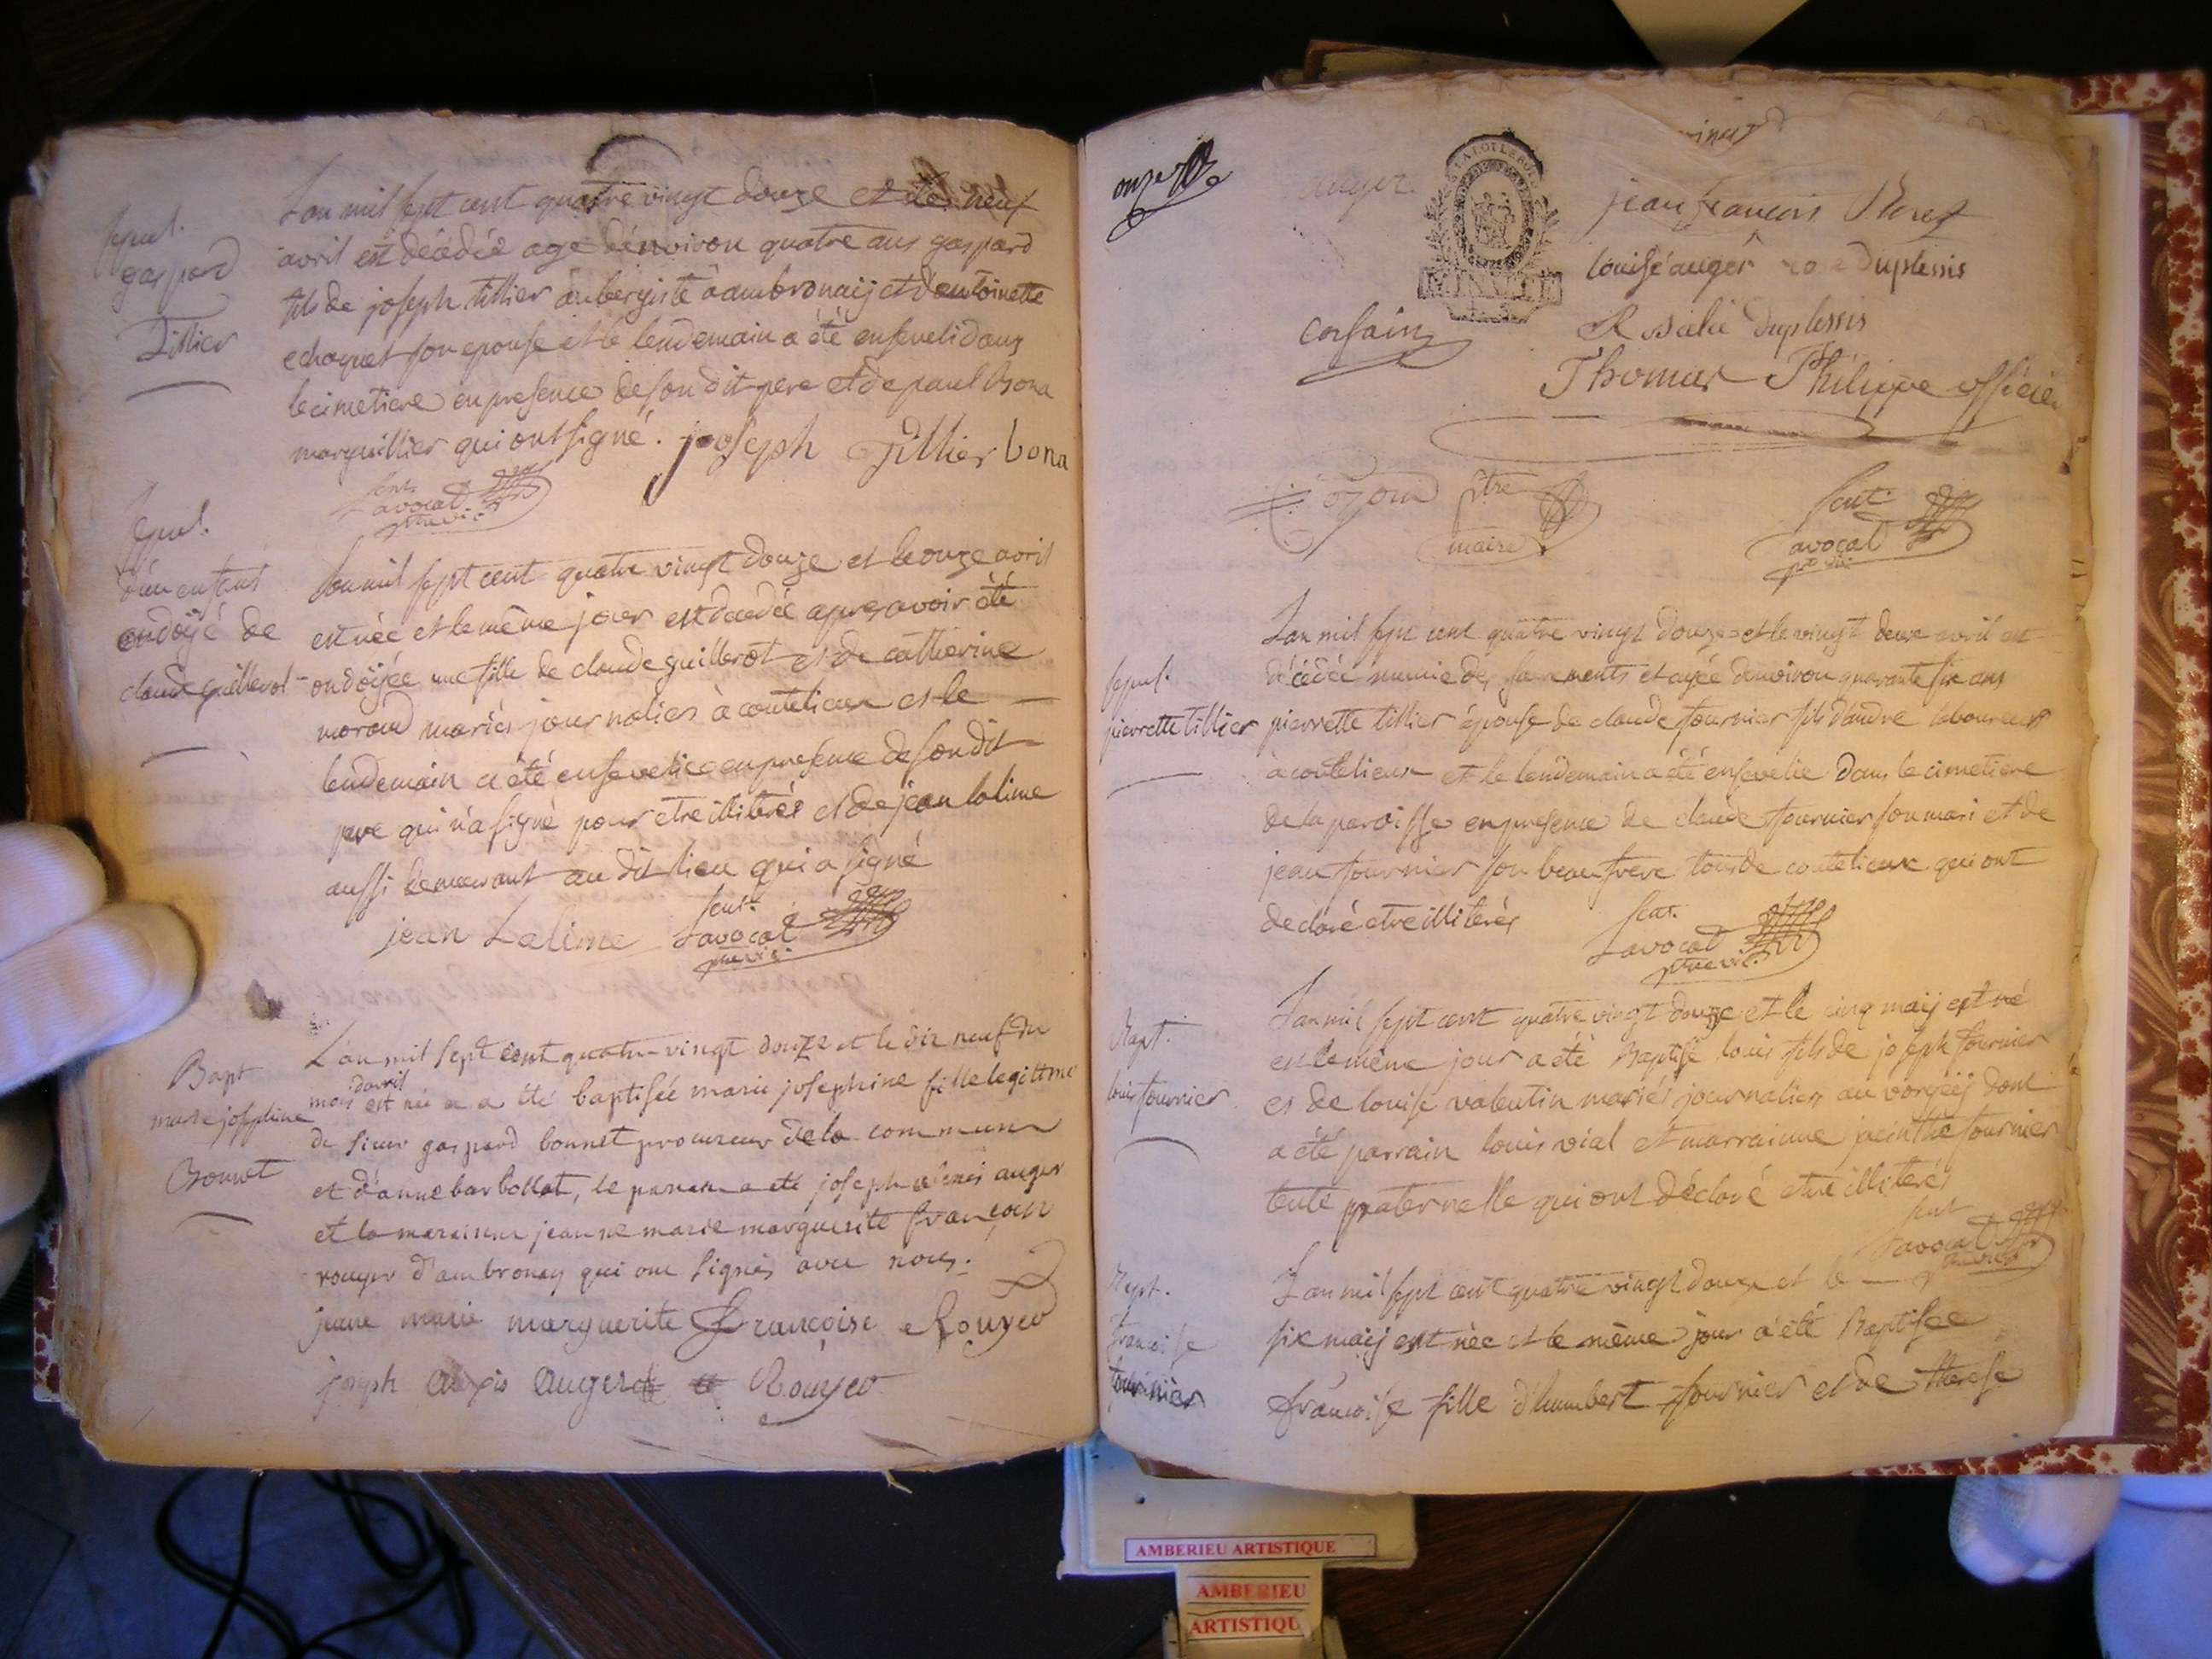 L'an mil sept cent quatre vingt douze et le neuf
avril est décédée age d'environ quatre ans gaspard
fils de joseph tillier aubergiste à ambronaij et d'antoinette
echoquet son epouse et le lendemain a été enseveli dans
le cimetiere en presence de son dit pere et de paul Bona
marguillier qui ont signé. joseph Tillier bona
sepul.
gaspard
Tillier
avocat
sepul.
d'un enfant
ondoÿé de
claude guillerot
L'an mil sept cent quatre vingt douze et le onze avril
est née et le même jour est décédée apres avoir été
ondoÿée une fille de claude guillerot et de catherine
morand mariés journaliers à coutelieux et le
lendemain a été ensevelie en presence de son dit
pere qui n'a signé pour etre illiterés et de jean lalime
aussi demeurant au dit lieu qui a signé
jean Lalime
avocat
Bapt
marie josephine
Bonnet
L'an mil sept cent quatre vingt douze et le dix neuf du
mois d'avril est née et a été baptisée marie josephine fille legitime
de sieur gaspard bonnet procureur de la commune
et d'anne barbollat, le parain a été joseph alexis auger
et la maraine jeanne marie marguerite françoise
rouyer d'ambronay qui ont signés avec nous.
jeane marie marguerite Françoise Rouyer
joseph alexis auger Rouyer
onze
auger
LA LOI LE ROI
jean francois
louise auger rose duplessis
Rosalie duplessis
Thomas Philippe officier
ozoux ptre
maire
avocat
sepul.
pierrette tillier
L'an mil sept cent quatre vingt douze et le vingt deux avril est
décédée munie des sacrements et agée d'environ quarante six ans
pierrette tillier épouse de claude fournier fils d'andre laboureur
à coutelieux et le lendemain a été ensevelie dans le cimetiere
de la paroisse en presence de claude fournier son mari et de
jean fournier son beau frere tous de coutelieux qui ont
declaré etre illiterés
avocat
Bapt.
louis fournier
L'an mil sept cent quatre vingt douze et le cinq maij est né
et le même jour a été Baptisé louis fils de joseph fournier
et de louise valentin mariés journaliers au dont
a été parrain louis vial et marrainne jacinthe fournier
tente paternelle qui ont déclaré etre illiterés
avocat
Bapt.
francoise
fournier
L'an mil sept cent quatre vingt douze et le
six maij est née et le même jour a été Baptisée
francoise fille d'humbert fournier et de therese
AMBERIEU ARTISTIQUE
AMBERIEU
ARTISTIQU